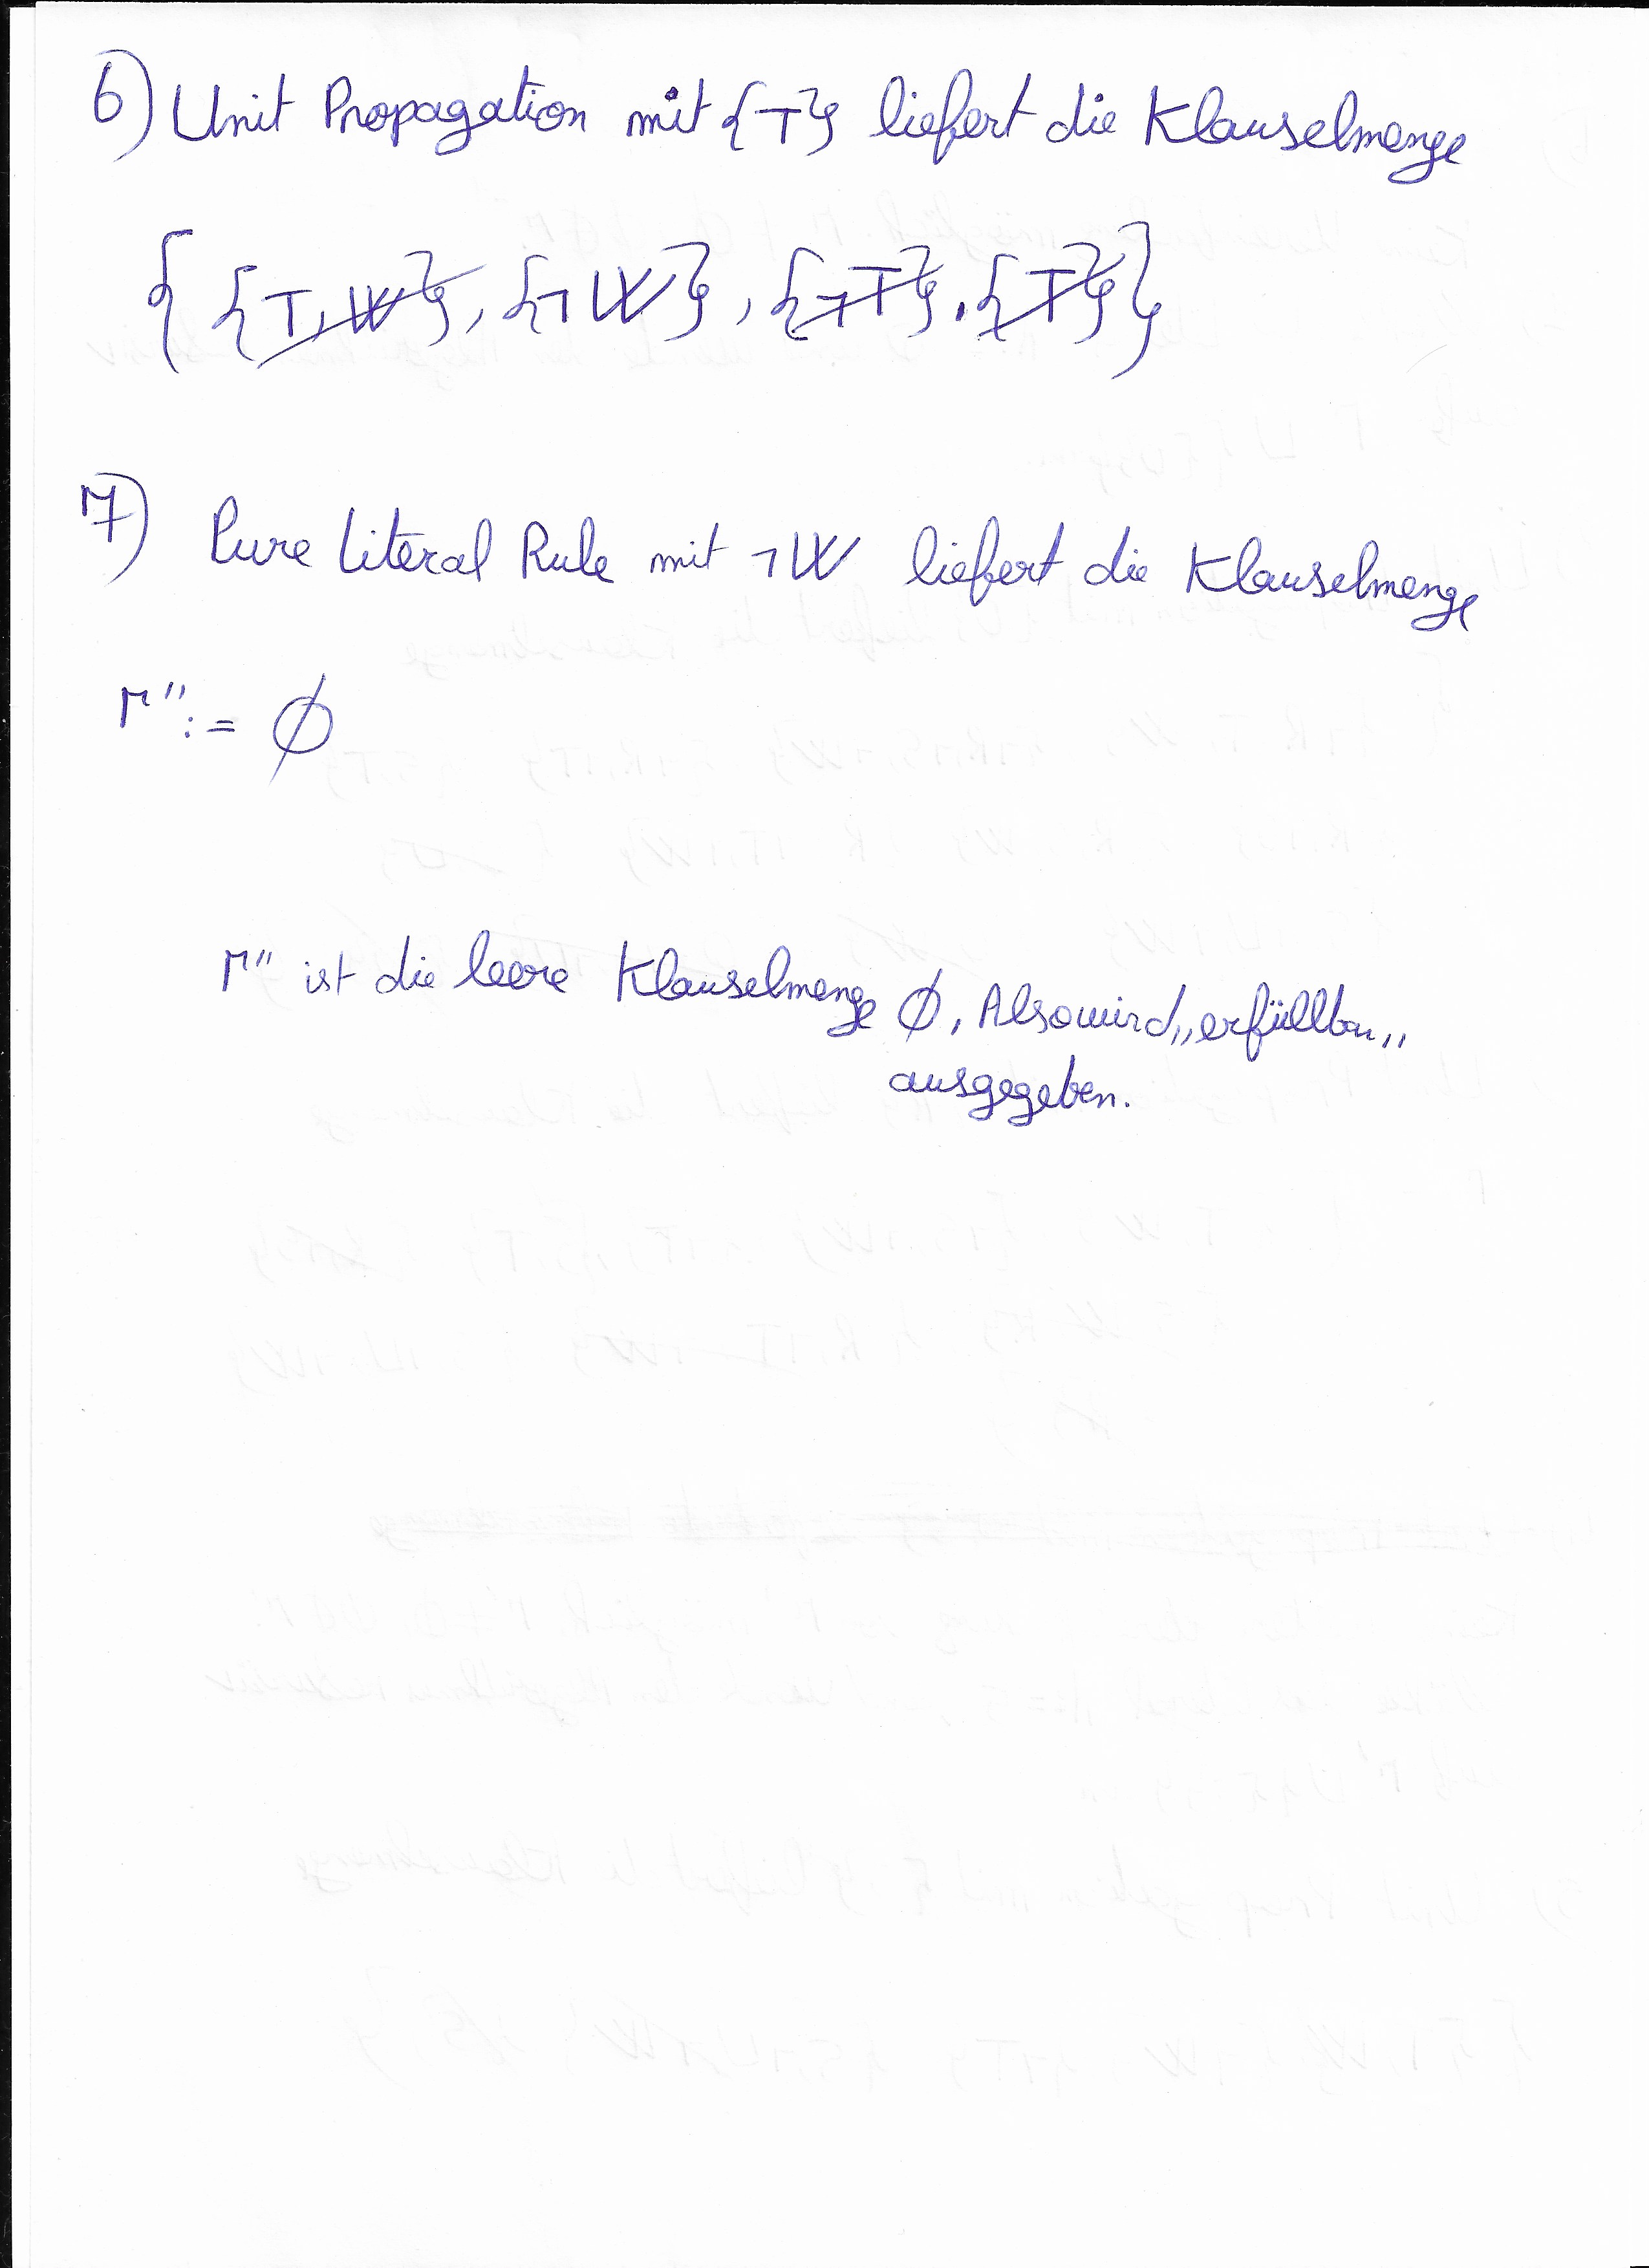 6) Unit Propagation mit {T} liefert die Klauselmenge
{ {T, W}, {¬W}, {¬T}, {T} }
7) Pure Literal Rule mit ¬W liefert die Klauselmenge
Γ'' := ∅
Γ'' ist die leere Klauselmenge ∅, Also wird „erfüllbar„
ausgegeben.